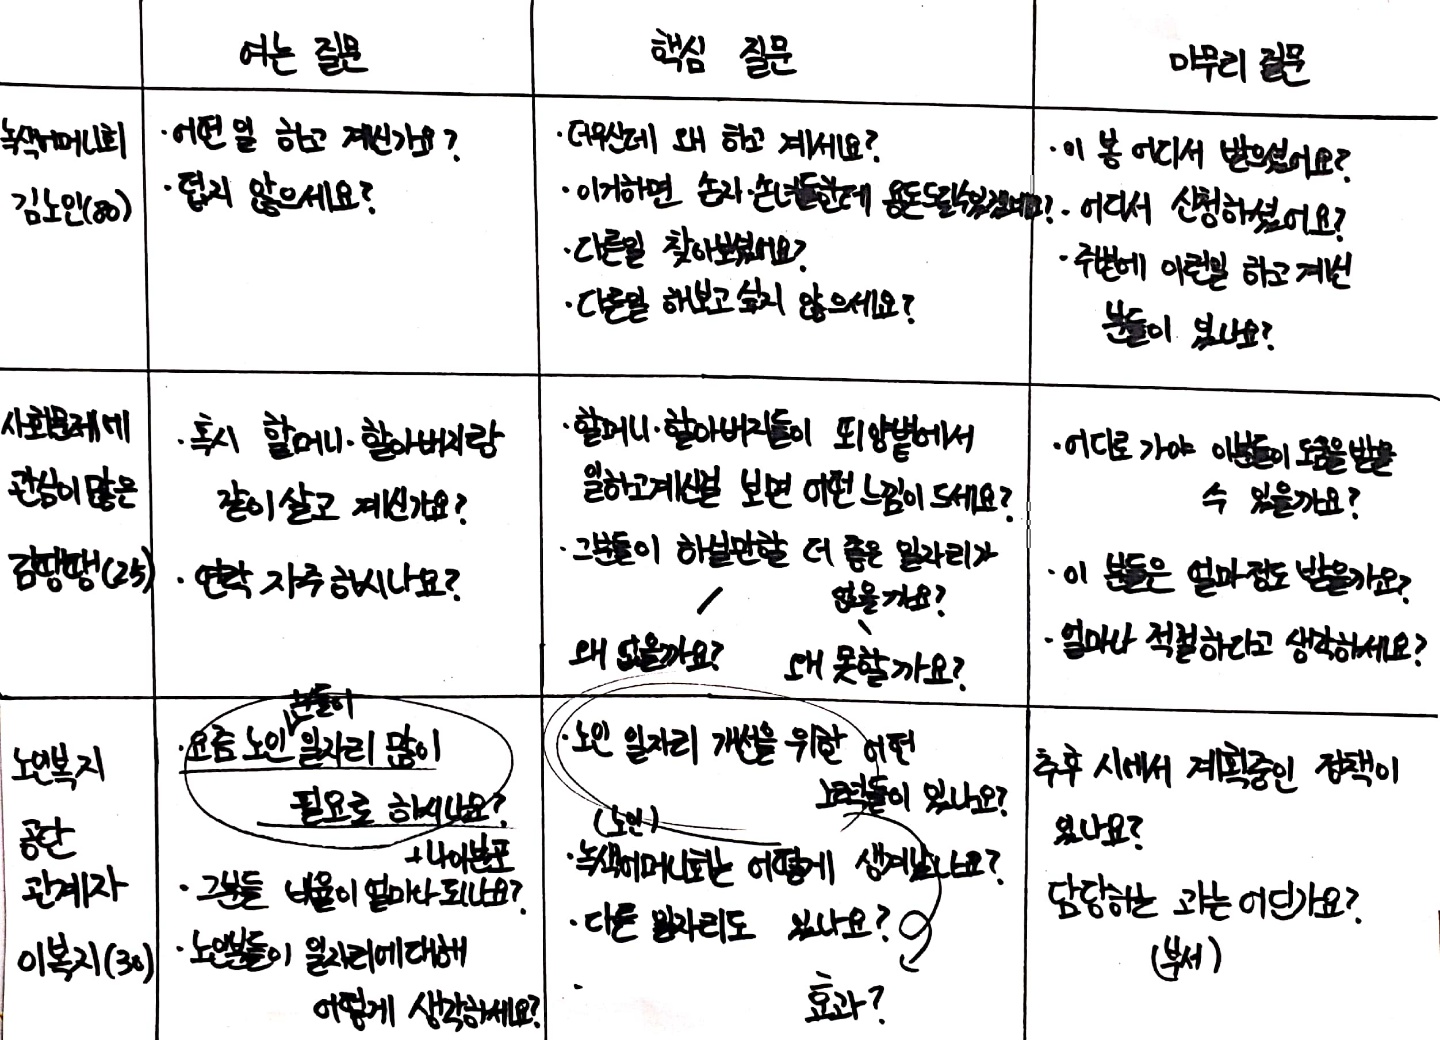 여는 질문
핵심 질문
마무리 질문
녹색어머니회
김노인(80)
·어떤 일 하고 계신가요?
·덥지 않으세요?
·더우신데 왜 하고 계세요?
·이거하면 손자·손녀들한테 용돈도드릴수있겠네요?
·다른일 찾아보셨어요?
·다른일 해보고 싶지 않으세요?
·이 봉 어디서 받으셨어요?
·어디서 신청하셨어요?
·주변에 이런일 하고 계신
분들이 있나요?
사회문제에
관심이 많은
김땡땡(25)
·혹시 할머니·할아버지랑
같이 살고 계신가요?
·연락 자주 하시나요?
·할머니·할아버지들이 뙤양볕에서
일하고계신걸 보면 어떤 느낌이 드세요?
·그분들이 하실만할 더 좋은 일자리가
없을까요?
왜 없을까요?
왜 못할까요?
·어디로 가야 이분들이 도움을 받을
수 있을까요?
·이 분들은 얼마정도 받을까요?
·얼마나 적절하다고 생각하세요?
노인복지
공단
관계자
이복지(30)
분들이
·요즘 노인 일자리 많이
필요로 하시나요?
+나이분포
·그분들 비율이 얼마나 되나요?
·노인분들이 일자리에 대해
어떻게 생각하세요?
·노인 일자리 개선을 위한 어떤
노력들이 있나요?
(노인)
·녹색어머니회는 어떻게 생겨났나요?
·다른 일자리도 있나요?
효과?
추후 시에서 계획중인 정책이
있나요?
담당하는 과는 어딘가요?
(부서)